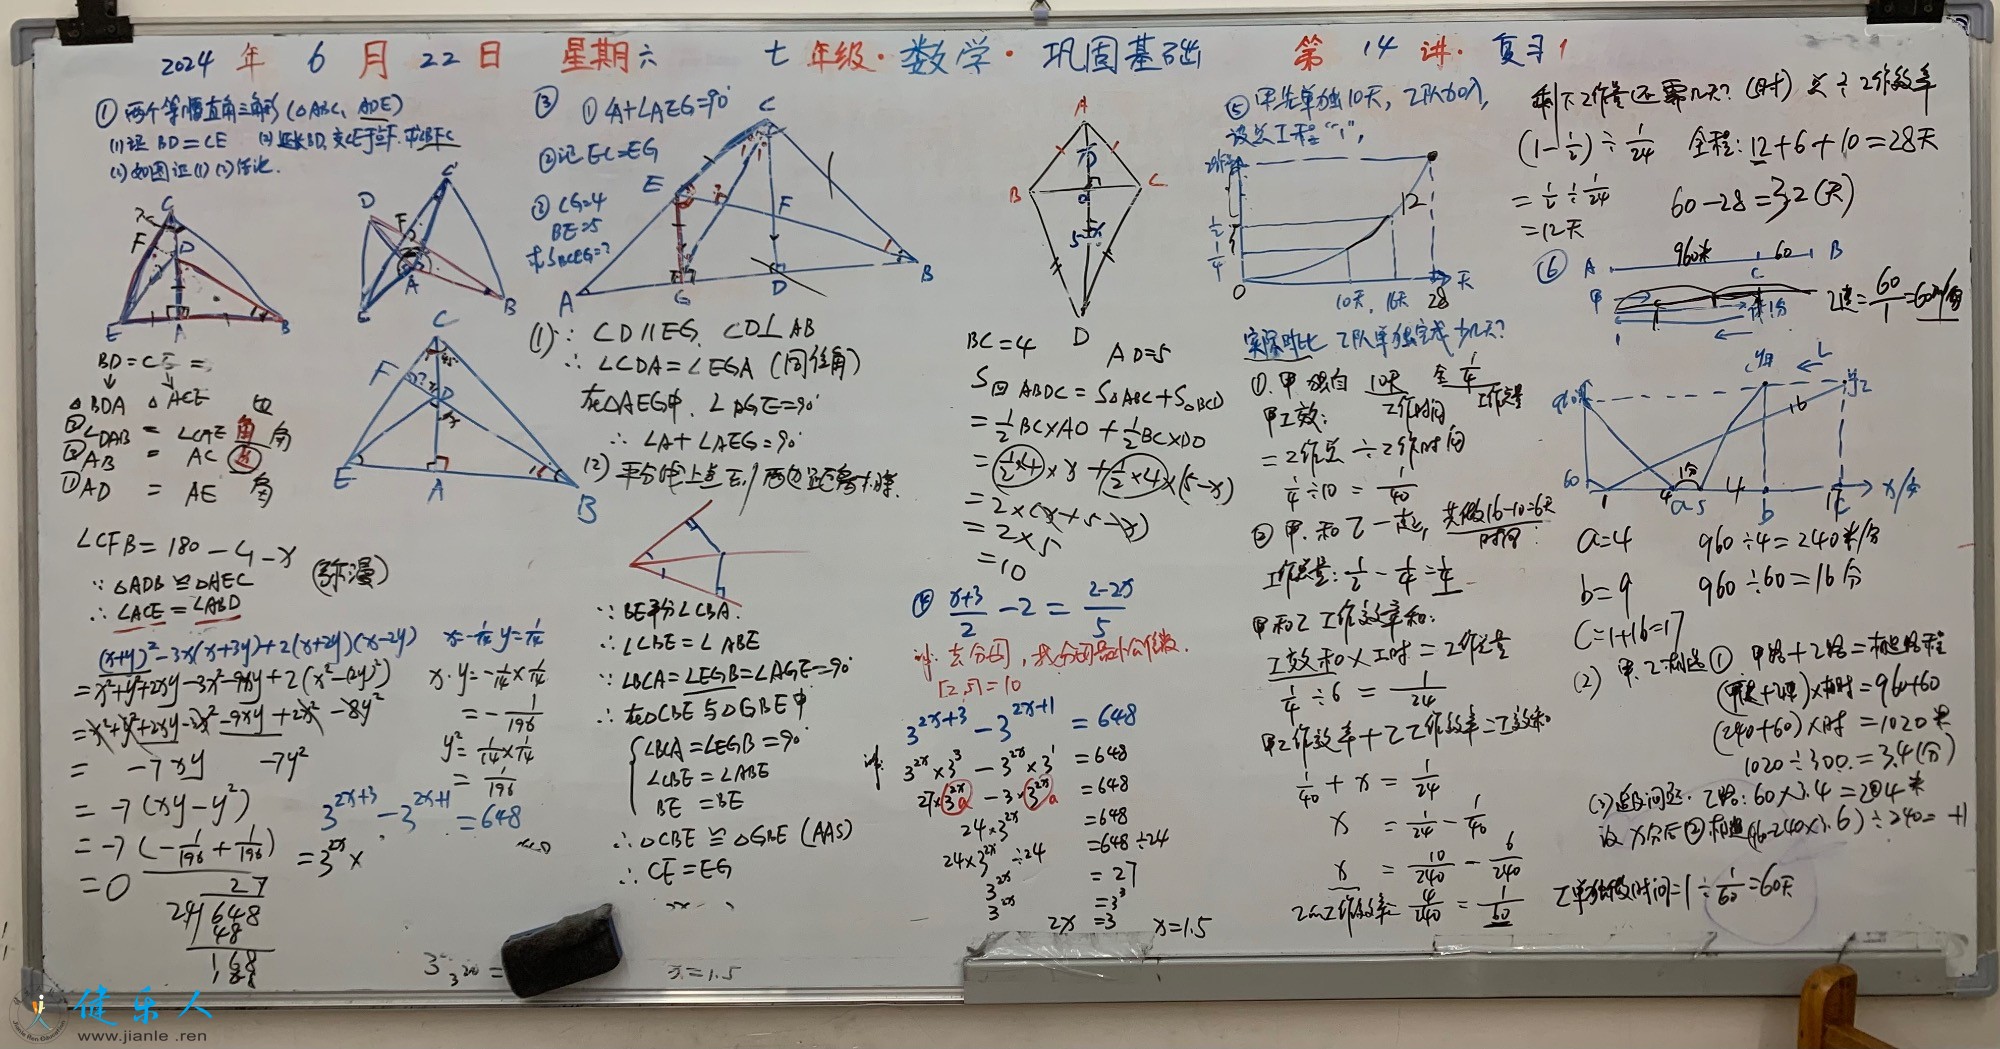 2024 年 6 月 22 日 星期六 七年级·数学·巩固基础 第 14 讲· 复习1
① 两个等腰直角三角形 (△ABC, ADE)
(1) 证 BD=CE (2) 延长BD, 交CE于点F. 求∠BFC
(3) 如图证(1)(2)结论.
C
F
D
E
A
B
D
F
C
A
B
BD=CE
△BDA △ACE
③ ∠DAB = ∠CAE 角
② AB = AC 边
① AD = AE
C
F
D
E
A
B
∠CFB=180-4-x
∵ △ADB≌△AEC
∴ ∠ACE=∠ABD
(弥漫)
(x+y)²-3x(x+3y)+2(x+2y)(x-2y)
=x²+y²+2xy-3x²-9xy+2(x²-4y²)
=x²+y²+2xy-3x²-9xy+2x²-8y²
= -7xy -7y²
=-7(xy-y²)
=-7(-1/196+1/196)
=0
x=-1/14 y=1/14
x·y=-1/14×1/14
=-1/196
y²=1/14×1/14
=1/196
3^(2x+3)-3^(2x+1)=648
=3^(2x)×
27
24 648
48
168
168
③ ①∠A+∠AEG=90°
②证 EC=EG
③ CG=4
BE=5
求S△CEG=?
C
E
F
A
G
D
B
(1)∵ CD∥EG, CD⊥AB
∴ ∠CDA=∠EGA (同位角)
在△AEG中, ∠AGE=90°
∴ ∠A+∠AEG=90°
(2) 平分线上点到两边距离相等.
∵ BE平分∠CBA.
∴ ∠CBE=∠ABE
∵ ∠BCA=∠EGB=∠AGE=90°
∴ 在△CBE与△GBE中
∠BCA=∠EGB=90°
∠CBE=∠ABE
BE=BE
∴ △CBE≌△GBE (AAS)
∴ CE=EG
x=1.5
A
B
C
D
BC=4 AD=5
S四ABDC=S△ABC+S△BCD
=½BC×AO+½BC×DO
=½×4×x+½×4×(5-x)
=2×(x+5-x)
=2×5
=10
④ (x+3)/2-2=(2-2x)/5
解: 去分母, 找分母最小公倍数.
[2,5]=10
3^(2x+3)-3^(2x+1)=648
解: 3^(2x)×3³-3^(2x)×3¹=648
27×3^(2x)-3×3^(2x)=648
24×3^(2x)=648
24×3^(2x)÷24=648÷24
3^(2x)=27
3^(2x)=3³
2x=3 x=1.5
⑤ 甲先单独10天, 乙队加入,
设总工程“1”,
1/2
1/4
0
10天, 16天 28 天
12
实际对比 乙队单独完成多少几天?
①. 甲独自 10天 全1/4
工作时间 工作总量
甲工效:
=工作总÷工作时间
1/4÷10=1/40
② 甲.和乙一起, 共做16-10=6天
时间
工作总量: 1/2-1/4=1/4
甲和乙工作效率和:
工效和×工时=工作总量
1/4÷6=1/24
甲工作效率+乙工作效率=工效和
1/40+x=1/24
x=1/24-1/40
x=10/240-6/240
乙的工作效率=4/240=1/60
剩下工作量还需几天? (时) 总÷工作效率
(1-½)÷1/24 全程: 12+6+10=28天
=½÷1/24 60-28=32(天)
=12天
⑥ A 960米 C 60 B
甲
1分
乙速=60/1=60m/分
960米
60
1 4 a 5 4 b c x/分
1分
16
a=4 960÷4=240米/分
b=9 960÷60=16分
C=1+16=17
(2) 甲.乙相遇 ① 甲路+乙路=相遇路程
(甲速+乙速)×相时=960+60
(240+60)×时=1020米
1020÷300=3.4(分)
(3) 追及问题. 乙路: 60×3.4=204米
乙单独做时间=1÷1/60=60天
健乐人
www.jianle.ren